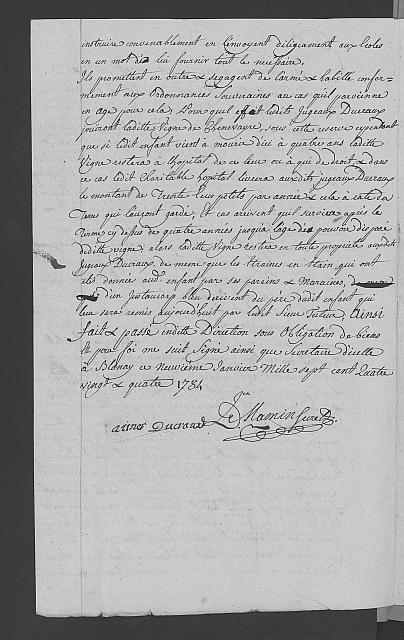 instruire convenablement en l'envoyent diligeament aux Ecoles
en un mot de lui fournir tout le necessaire.
Ils promettent en outre & segagent de l'armé & habille confor-
mément aux Ordonnances Souveraines au cas qu'il parvienne
en age pour cela, Pour quel effet lesdits Jugeaux Ducraux
jouiront laditte Vigne des Chenevayre, sous cette reserve cependant
que si ledit enfant vient a mourir d'ici à quatre ans laditte
Vigne restera à l'hopital de ce lieu ou à qui de droit & dans
ce cas ledit Charitable hopital livrera auxdits jugeaux Ducraux
le montant de Trente Ecus petits par année & cela à rate du
tems qu'ils l'auront gardé, Et cas arrivent qu'il survive après le
terme cy dessus des quatre années jusqu'à l'age de pouvoir disposé
deditte vigne, alors laditte Vigne restera en toute propriété auxdits
Jugeaux Ducraux de meme que les Etraines en Etain qui ont
étés donnés aud. enfant par ses parains & Maraines,
d'un Justaucorp bleu derivent du pere dudit enfant qui
leur sera remis aujourd'huit par ledit Sieur Tuteur, Ainsi
fait & passé enditte Direction sous Obligation de biens
Et pour foi me suit Signé ainsi que Secretaire d'icelle
à Blonay ce Neuvième Janvier Mille sept cent Quatre
vingt & quatre 1784
Ducraux Le Mamin Secret.